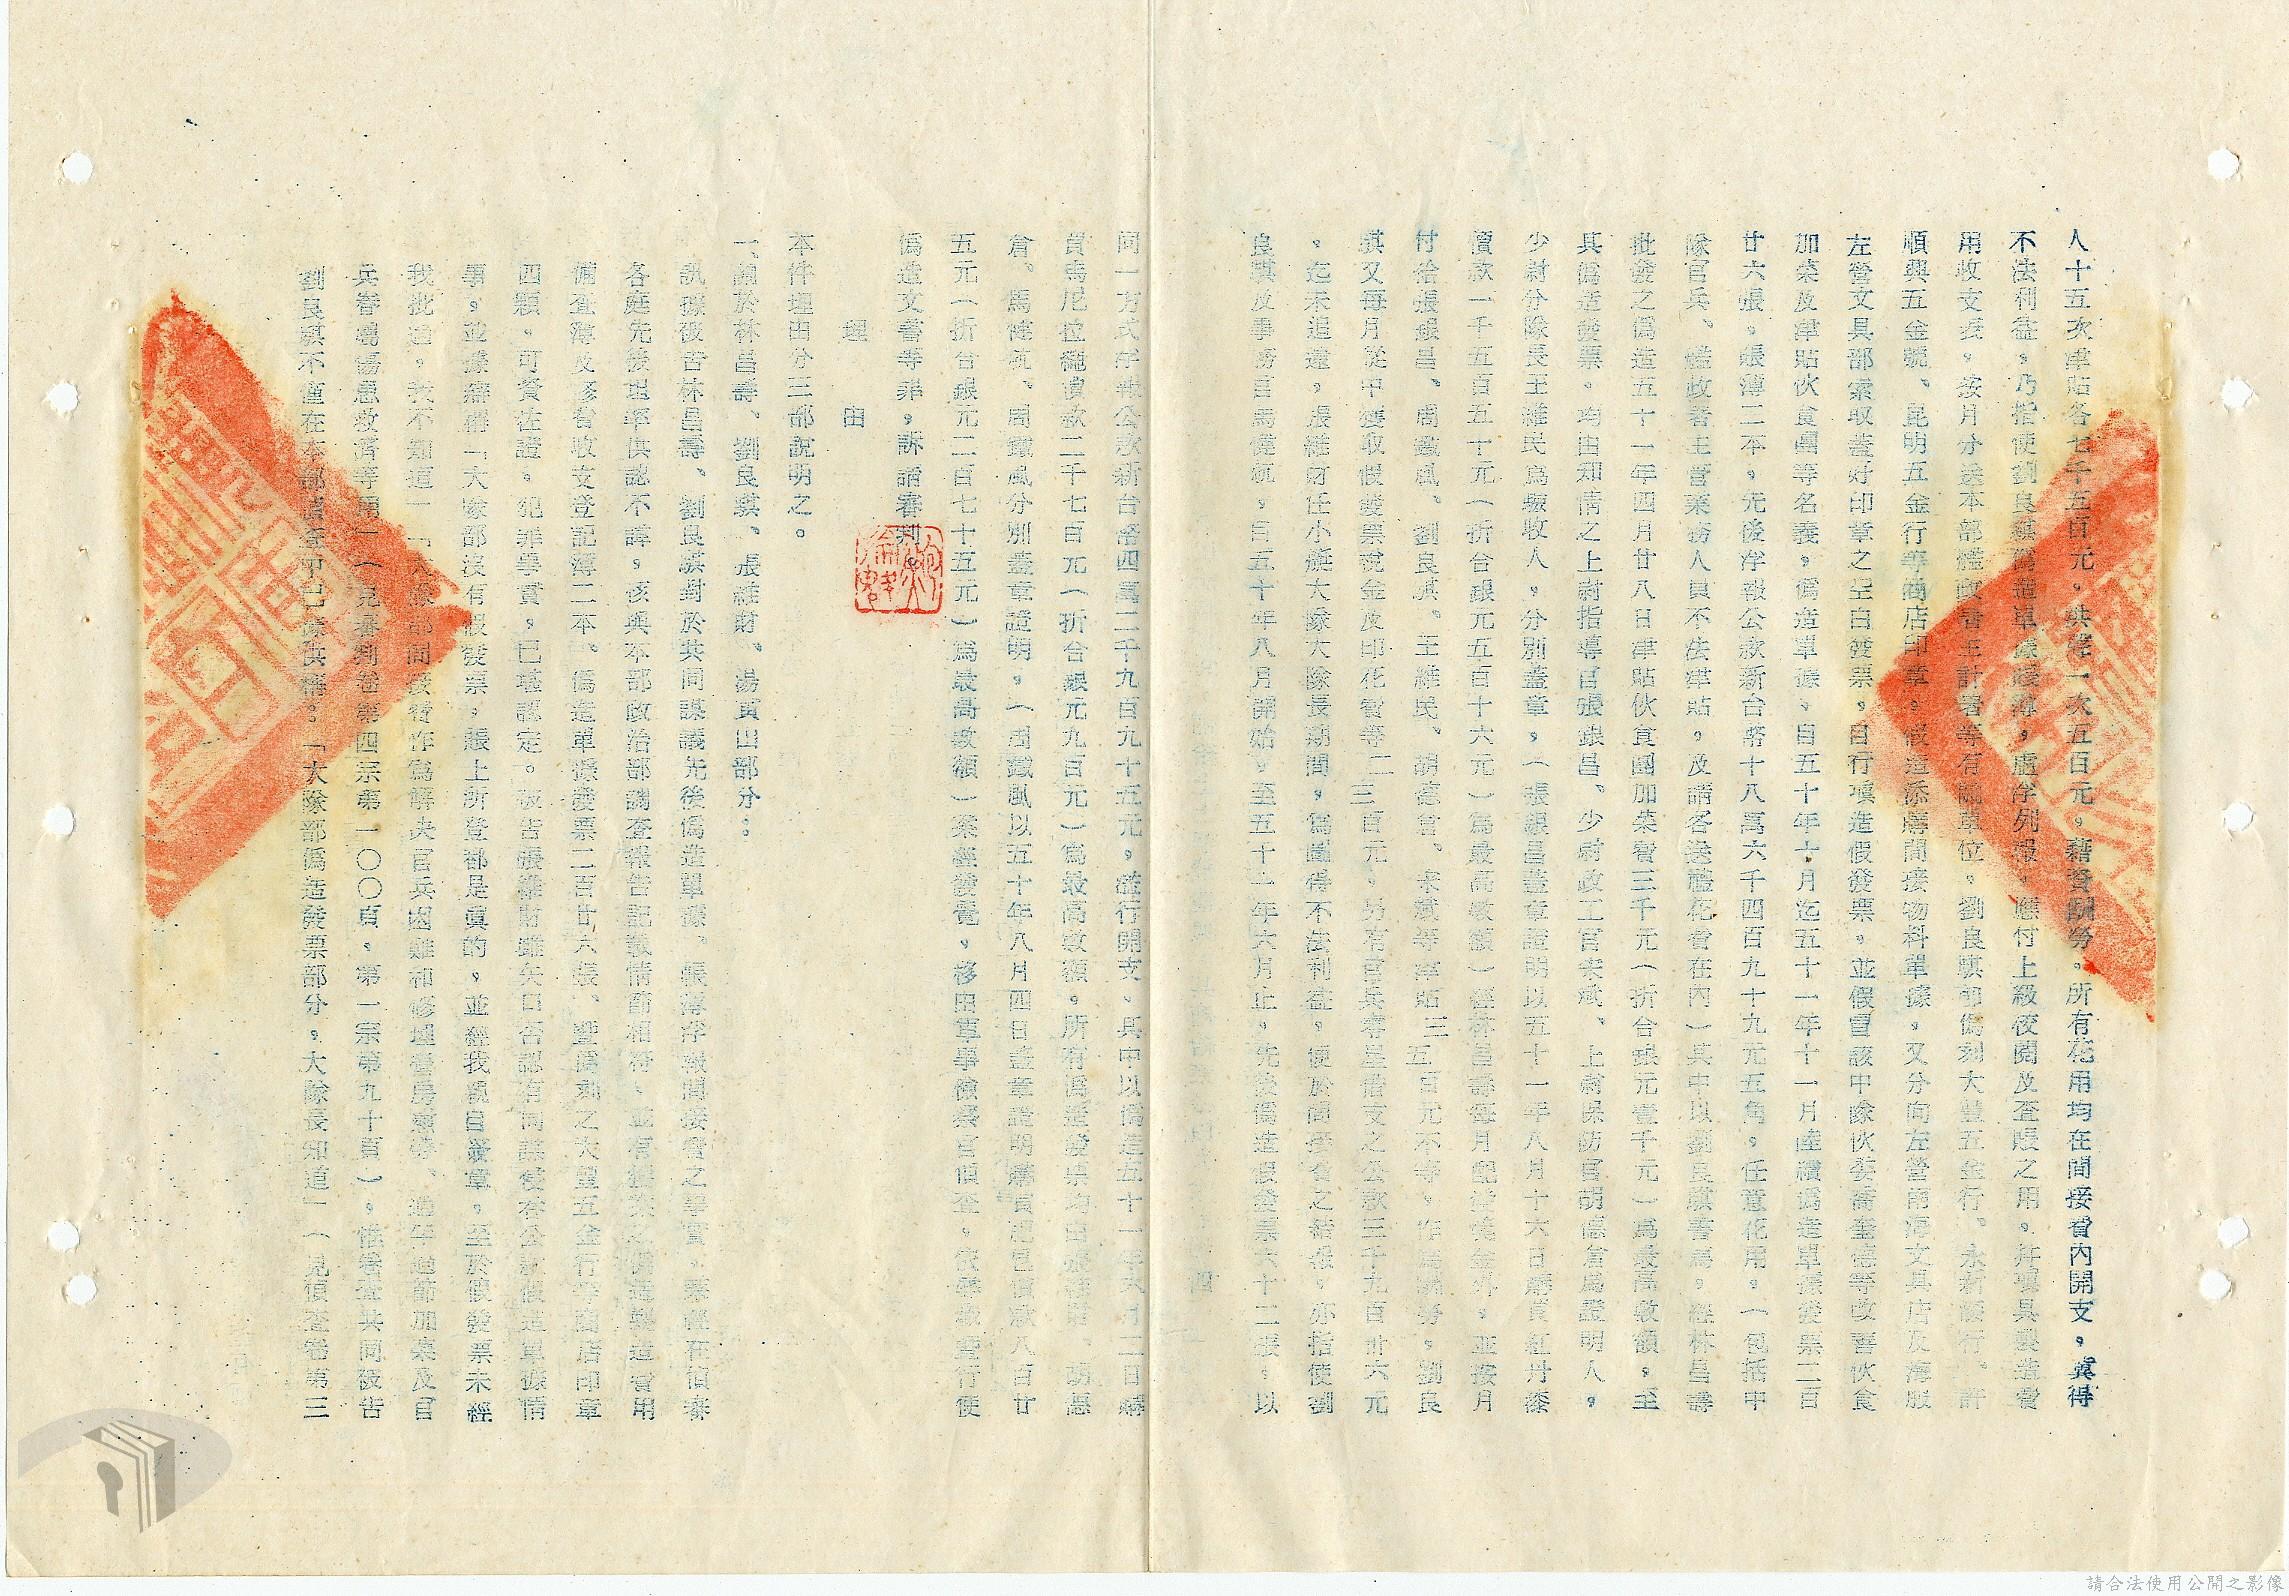 人十五次津貼各七千五百元，共餘一次五百元，藉資酬勞。所有花用均在間接費內開支，冀得
不法利益，乃指使劉良騏偽造單據帳簿，虛浮列報，應付上級校閱及查賬之用，并填具製造費
用收支表，按月分送本部艦政署主計署等有關單位。劉良騏即偽刻大豐五金行、永新號行、許
順興五金號、昆明五金行等商店印章，假造添購間接物料單據，又分向左營南海文具店及海服
左營文具部索取蓋好印章之空白發票，自行填造假發票，並假冒該中隊伙委喬奎德等改善伙食
加菜及津貼伙食團等名義，偽造單據，自五十年十月迄五十一年十一月陸續偽造單據發票二百
廿六張，賬簿二本，先後浮報公款新台幣十八萬六千四百九十九元五角，任意花用。（包括中
隊官兵、艦政署主管業務人員不法津貼，及請客送禮花費在內）其中以劉良騏書寫，經林昌壽
批發之偽造五十一年四月廿八日津貼伙食團加菜費三千元（折合銀元壹千元）為最高數額，至
其偽造發票，均由知情之上尉指導官張銀昌、少尉政工官宋斌、上尉保防官胡德富為證明人，
少尉分隊長王維民為驗收人，分別蓋章，（張銀昌蓋章證明以五十一年八月十六日購買紅丹漆
價款一千五百五十元（折合銀元五百十六元）為最高數額）經林昌壽每月配發獎金外，並按月
付給張銀昌、周鐵風、劉良騏、王維民、胡德富、宋斌等津貼三五百元不等，作為酬勞，劉良
騏又每月從中獲取假發票稅金及印花費等二三百元，另有官兵零星借支之公款三千九百卅六元
，迄未追還，張維財任小艇大隊大隊長期間，為圖得不法利益，便於間接費之結報，亦指使劉
良騏及事務官馬健航，自五十年八月開始，至五十一年六月止，先後偽造假發票六十二張，以
同一方式浮報公款新台幣四萬二千九百九十五元，濫行開支，其中以偽造五十一年六月二日購
買馬尼拉繩價款二千七百元（折合銀元九百元）為最高數額，所有偽造發票均由張維財、胡德
富、馬健航、周鐵風分別蓋章證明，（周鐵風以五十年八月四日蓋章證明購買肥皂價款八百廿
五元（折合銀元二百七十五元）為最高數額）案經發覺，移由軍事檢察官偵查，依舞弊暨行使
偽造文書等罪，訴請審判。
理　由
本件理由分三部說明之。
一、關於林昌壽、劉良騏、張維財、湯貢出部分：
訊據被告林昌壽、劉良騏對於共同謀議先後偽造單據、帳簿浮報間接費之事實，業經在偵審
各庭先後坦率供認不諱，核與本部政治部調查報告記載情節相符，並有獲案之偽造製造費用
備查簿及修管收支登記簿二本、偽造單據發票二百廿六張、暨偽刻之大豐五金行等商店印章
四顆，可資佐證，犯罪事實，已堪認定。被告張維財雖矢口否認有同謀侵吞公款假造單據情
事，並據辯稱「大隊部沒有假發票，賬上所登都是真的，並經我親自蓋章，至於假發票未經
我批過，我不知道」「大隊部間接費作為解決官兵困難和修理營房慈善、過年過節加菜及官
兵眷屬傷患救濟等用」（見審判卷第四宗第一〇〇頁，第一宗第九十頁），惟卷查共同被告
劉良騏不僅在本部調查中已據供稱：「大隊部偽造發票部分，大隊長知道」（見偵查卷第三
請合法使用公開之影像